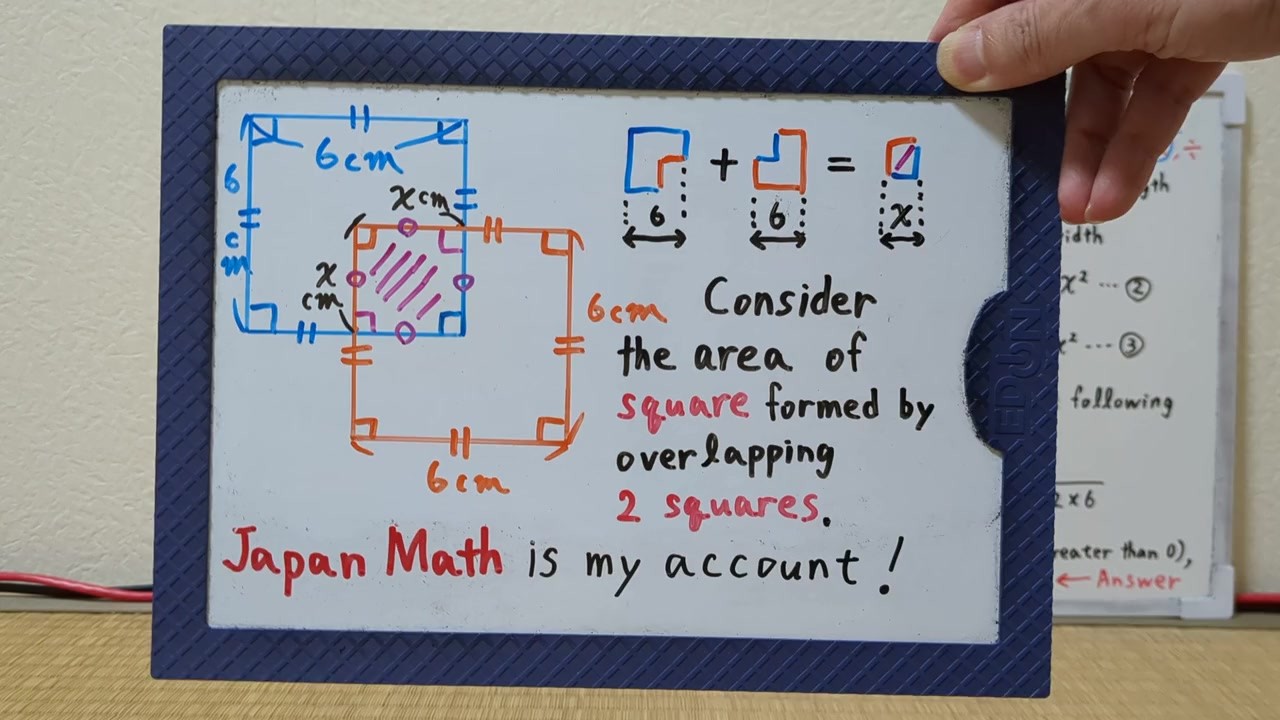 6cm
6
cm
x cm
x
cm
6cm
6cm
+ =
6 6 x
Consider
the area of
square formed by
overlapping
2 squares.
Japan Math is my account!
EDUN
÷
idth
x² ... ②
² ... ③
following
2 × 6
reater than 0),
← Answer